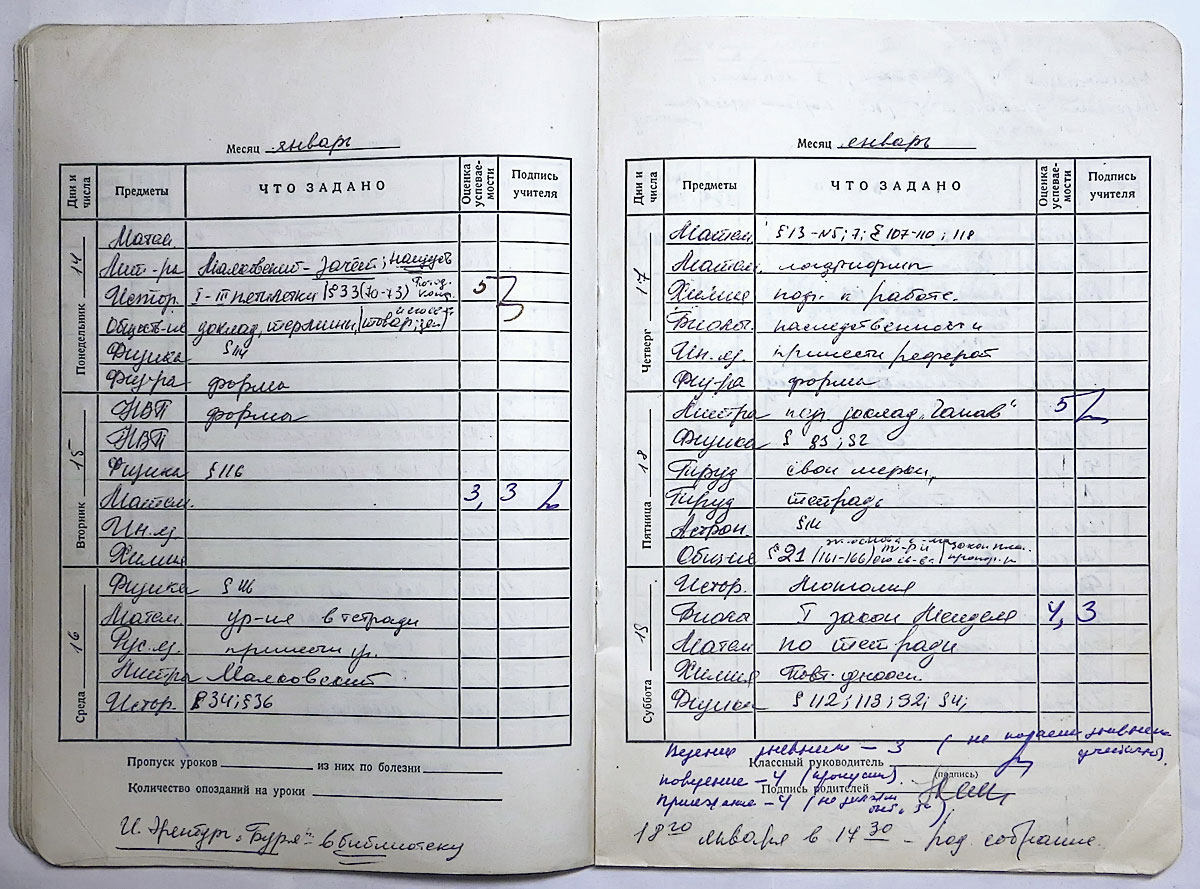 Месяц январь
Дни и числа
Предметы
ЧТО ЗАДАНО
Оценка успеваемости
Подпись учителя
Понедельник 14
Матем
Лит-ра Маяковский - зачет; наизусть
Истор. I-III пятилетки (§33 (70-73) 5
Обществ-ие доклад, термины
Физика §114
Физ-ра форма
Вторник 15
НВП форма
НВП
Физика §116
Матем. 3, 3
Ин.яз.
Химия
Среда 16
Физика §116
Матем. ур-ие в тетради
Рус.яз. принести уч.
Лит-ра Маяковский
Истор. §34; §36
Пропуск уроков из них по болезни
Количество опозданий на уроки
"Буря" в библиотеку
Месяц январь
Дни и числа
Предметы
ЧТО ЗАДАНО
Оценка успеваемости
Подпись учителя
Четверг 17
Матем §13-N5; 7; § 107-110; 118
Матем. логарифмы
Химия подг. к работе.
Биолог. наследственность
Ин.яз. принести реферат
Физ-ра форма
Пятница 18
Лит-ра доклад 5
Физика §
Труд свои мерки,
Труд тетрадь
Астрон. §14
Общ-ие §21 (161-166)
Суббота 19
Истор. Монголия
Биолог I закон Менделя 4, 3
Матем по тетради
Химия Повт.
Физика § 112; 113; 92; 94;
Ведение дневника - 3 (не
Классный руководитель
(подпись)
поведение - 4 (пропуски).
Подпись родителей
Прилежание - 4
января в 17 30 - род. собрание.